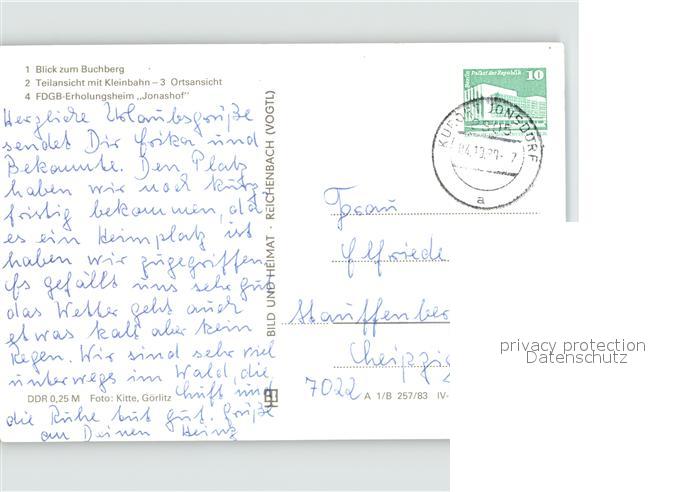 1 Blick zum Buchberg
2 Teilansicht mit Kleinbahn – 3 Ortsansicht
4 FDGB-Erholungsheim „Jonashof"
Herzliche Urlaubsgrüße
sendet Dir Erika und
Bekannte. Den Platz
haben wir noch kurz
fristig bekommen, da
es ein Heimplatz ist
haben wir zugegriffen.
Es gefällt uns sehr gut
das Wetter geht auch
etwas kalt aber kein
Regen. Wir sind sehr viel
unterwegs im Wald, die
Luft und
die Ruhe tut gut. Grüße
an Deinen Heinz
DDR 0,25 M Foto: Kitte, Görlitz
BILD UND HEIMAT · REICHENBACH (VOGTL)
Berlin Palast der Republik 10
KURORT JONSDORF
a
Frau
Elfriede
Stauffenber
Leipzig
7022
A 1/B 257/83 IV-
privacy protection
Datenschutz